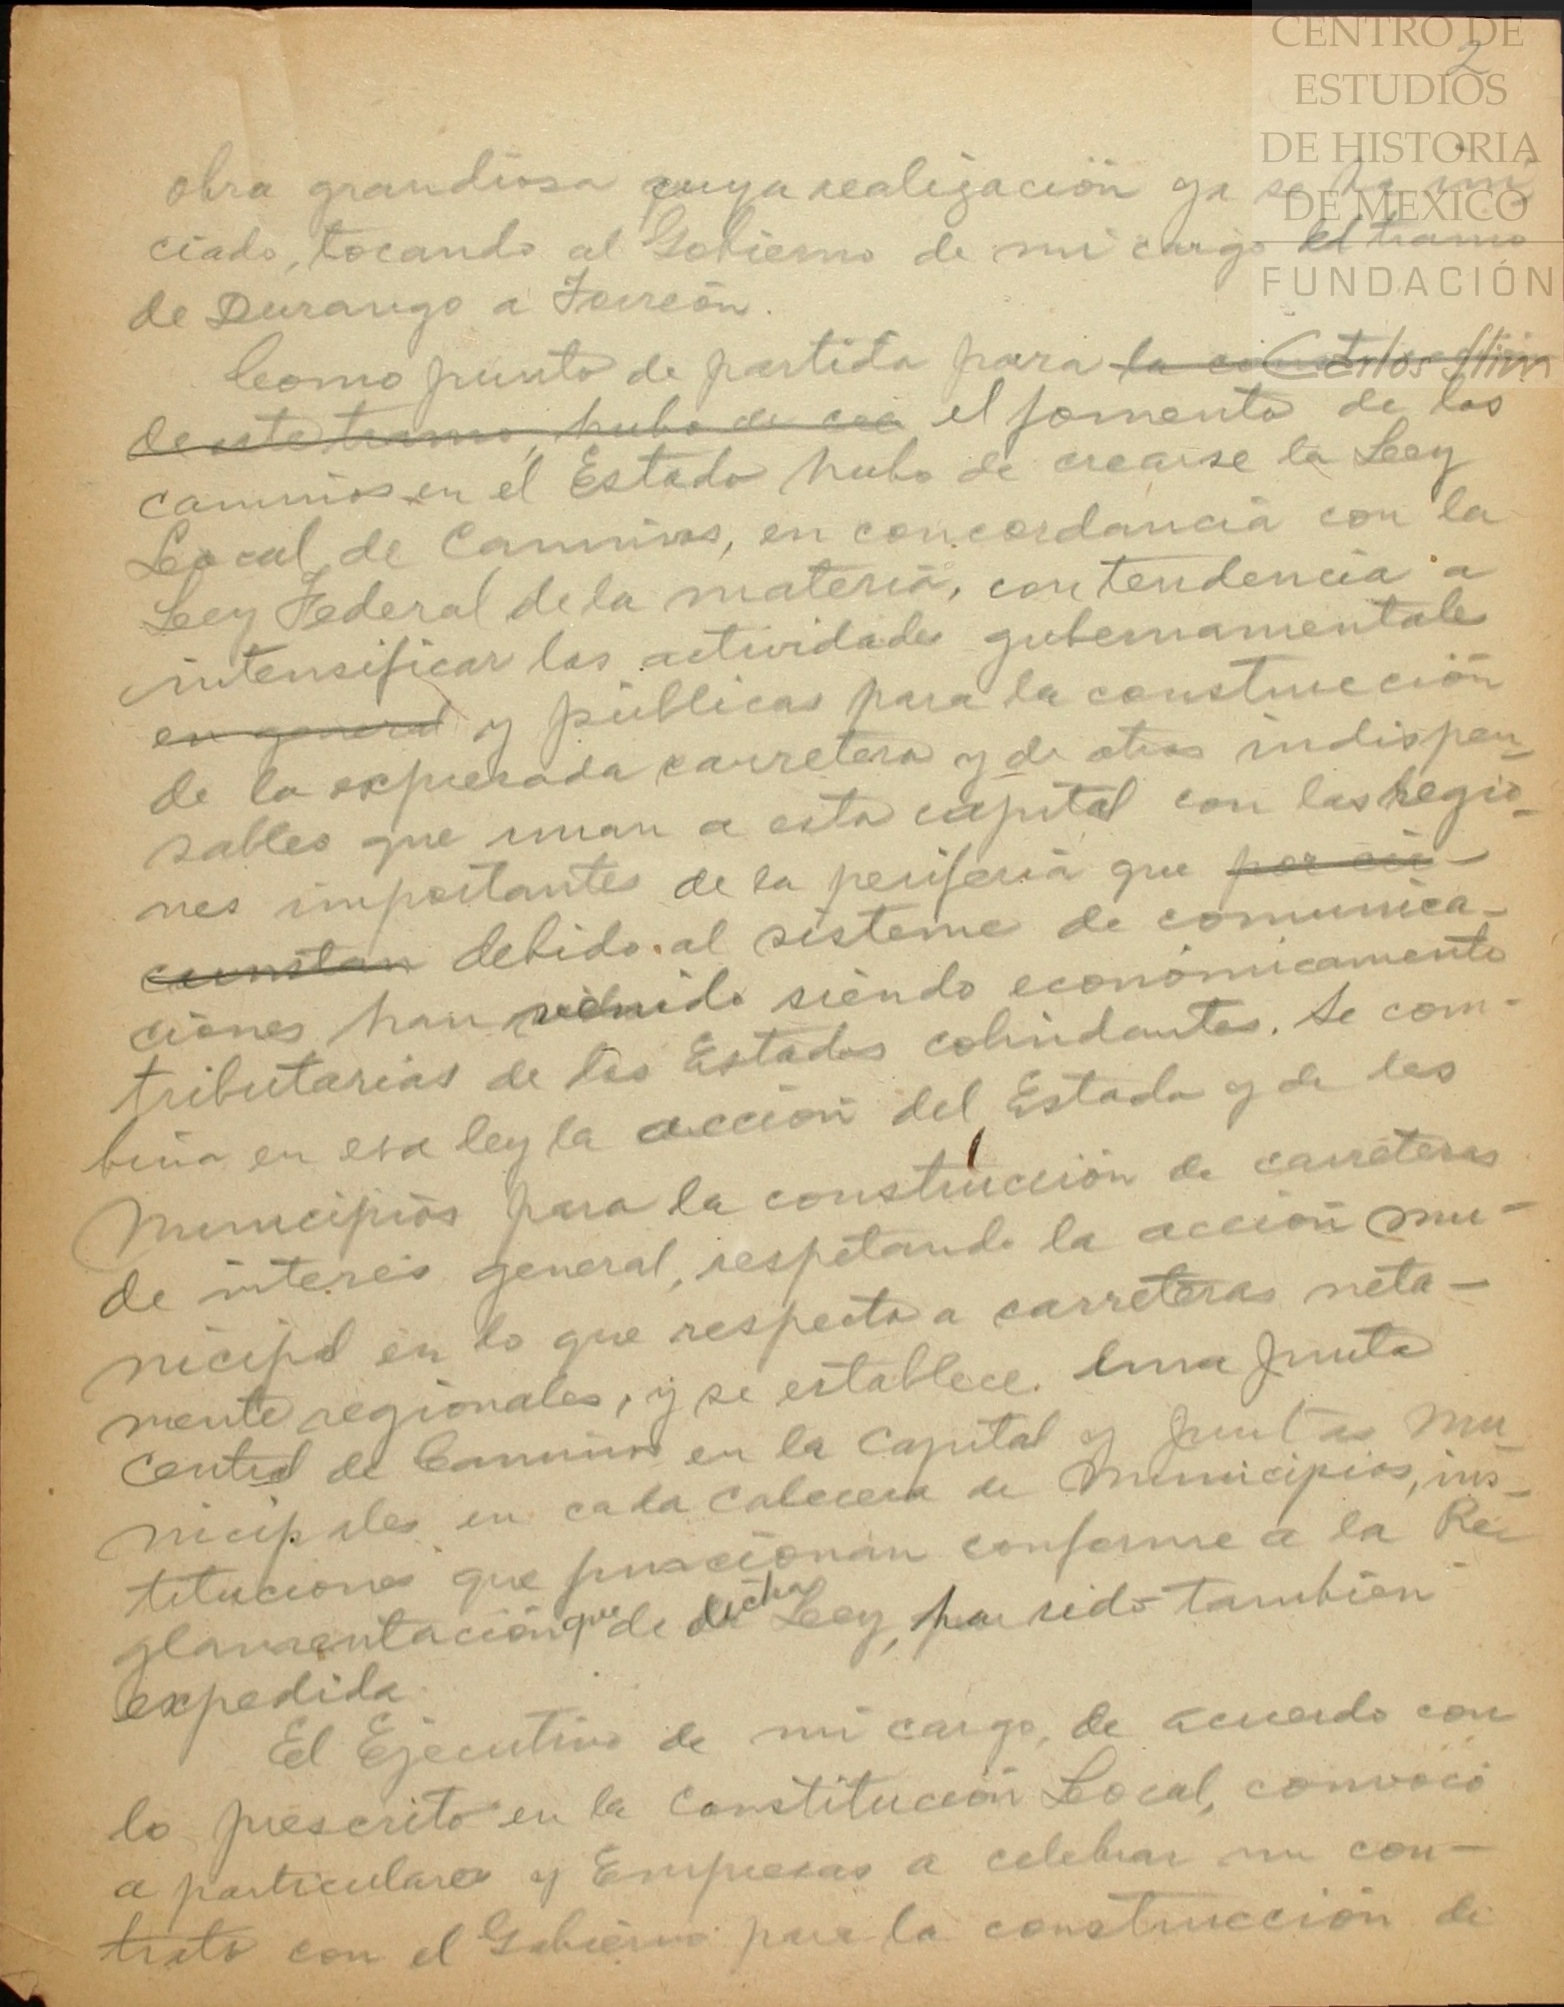 CENTRO DE
2
ESTUDIOS
DE HISTORIA
DE MEXICO
FUNDACIÓN
Carlos Slim
obra grandiosa cuya realización ya se ha ini
ciado, tocando al Gobierno de mi cargo el tramo
de Durango a Torreón.
Como punto de partida para la
de este tramo, hubo de el fomento de los
caminos en el Estado hubo de crearse la Ley
Local de Caminos, en concordancia con la
Ley Federal de la materia, con tendencia a
intensificar las actividades gubernamentales
en general y públicas para la construcción
de la expresada carretera y de otras indispen-
sables que unan a esta capital con las regio-
nes importantes de la periferia que por cir-
cunstan debido al sistema de comunica-
ciones han venido siendo económicamente
tributarias de los Estados colindantes. Se com-
bina en esa ley la acción del Estado y de los
Municipios para la construcción de carreteras
de interés general, respetando la acción mu-
nicipal en lo que respecta a carreteras neta-
mente regionales, y se establece una Junta
Central de Caminos en la Capital y Juntas Mu-
nicipales en cada Cabecera de Municipios, ins-
tituciones que funcionan conforme a la Re-
glamentación que de dicha Ley, ha sido también
expedida.
El Ejecutivo de mi cargo, de acuerdo con
lo prescrito en la Constitución Local, convocó
a particulares y Empresas a celebrar un con-
trato con el Gobierno para la construcción de